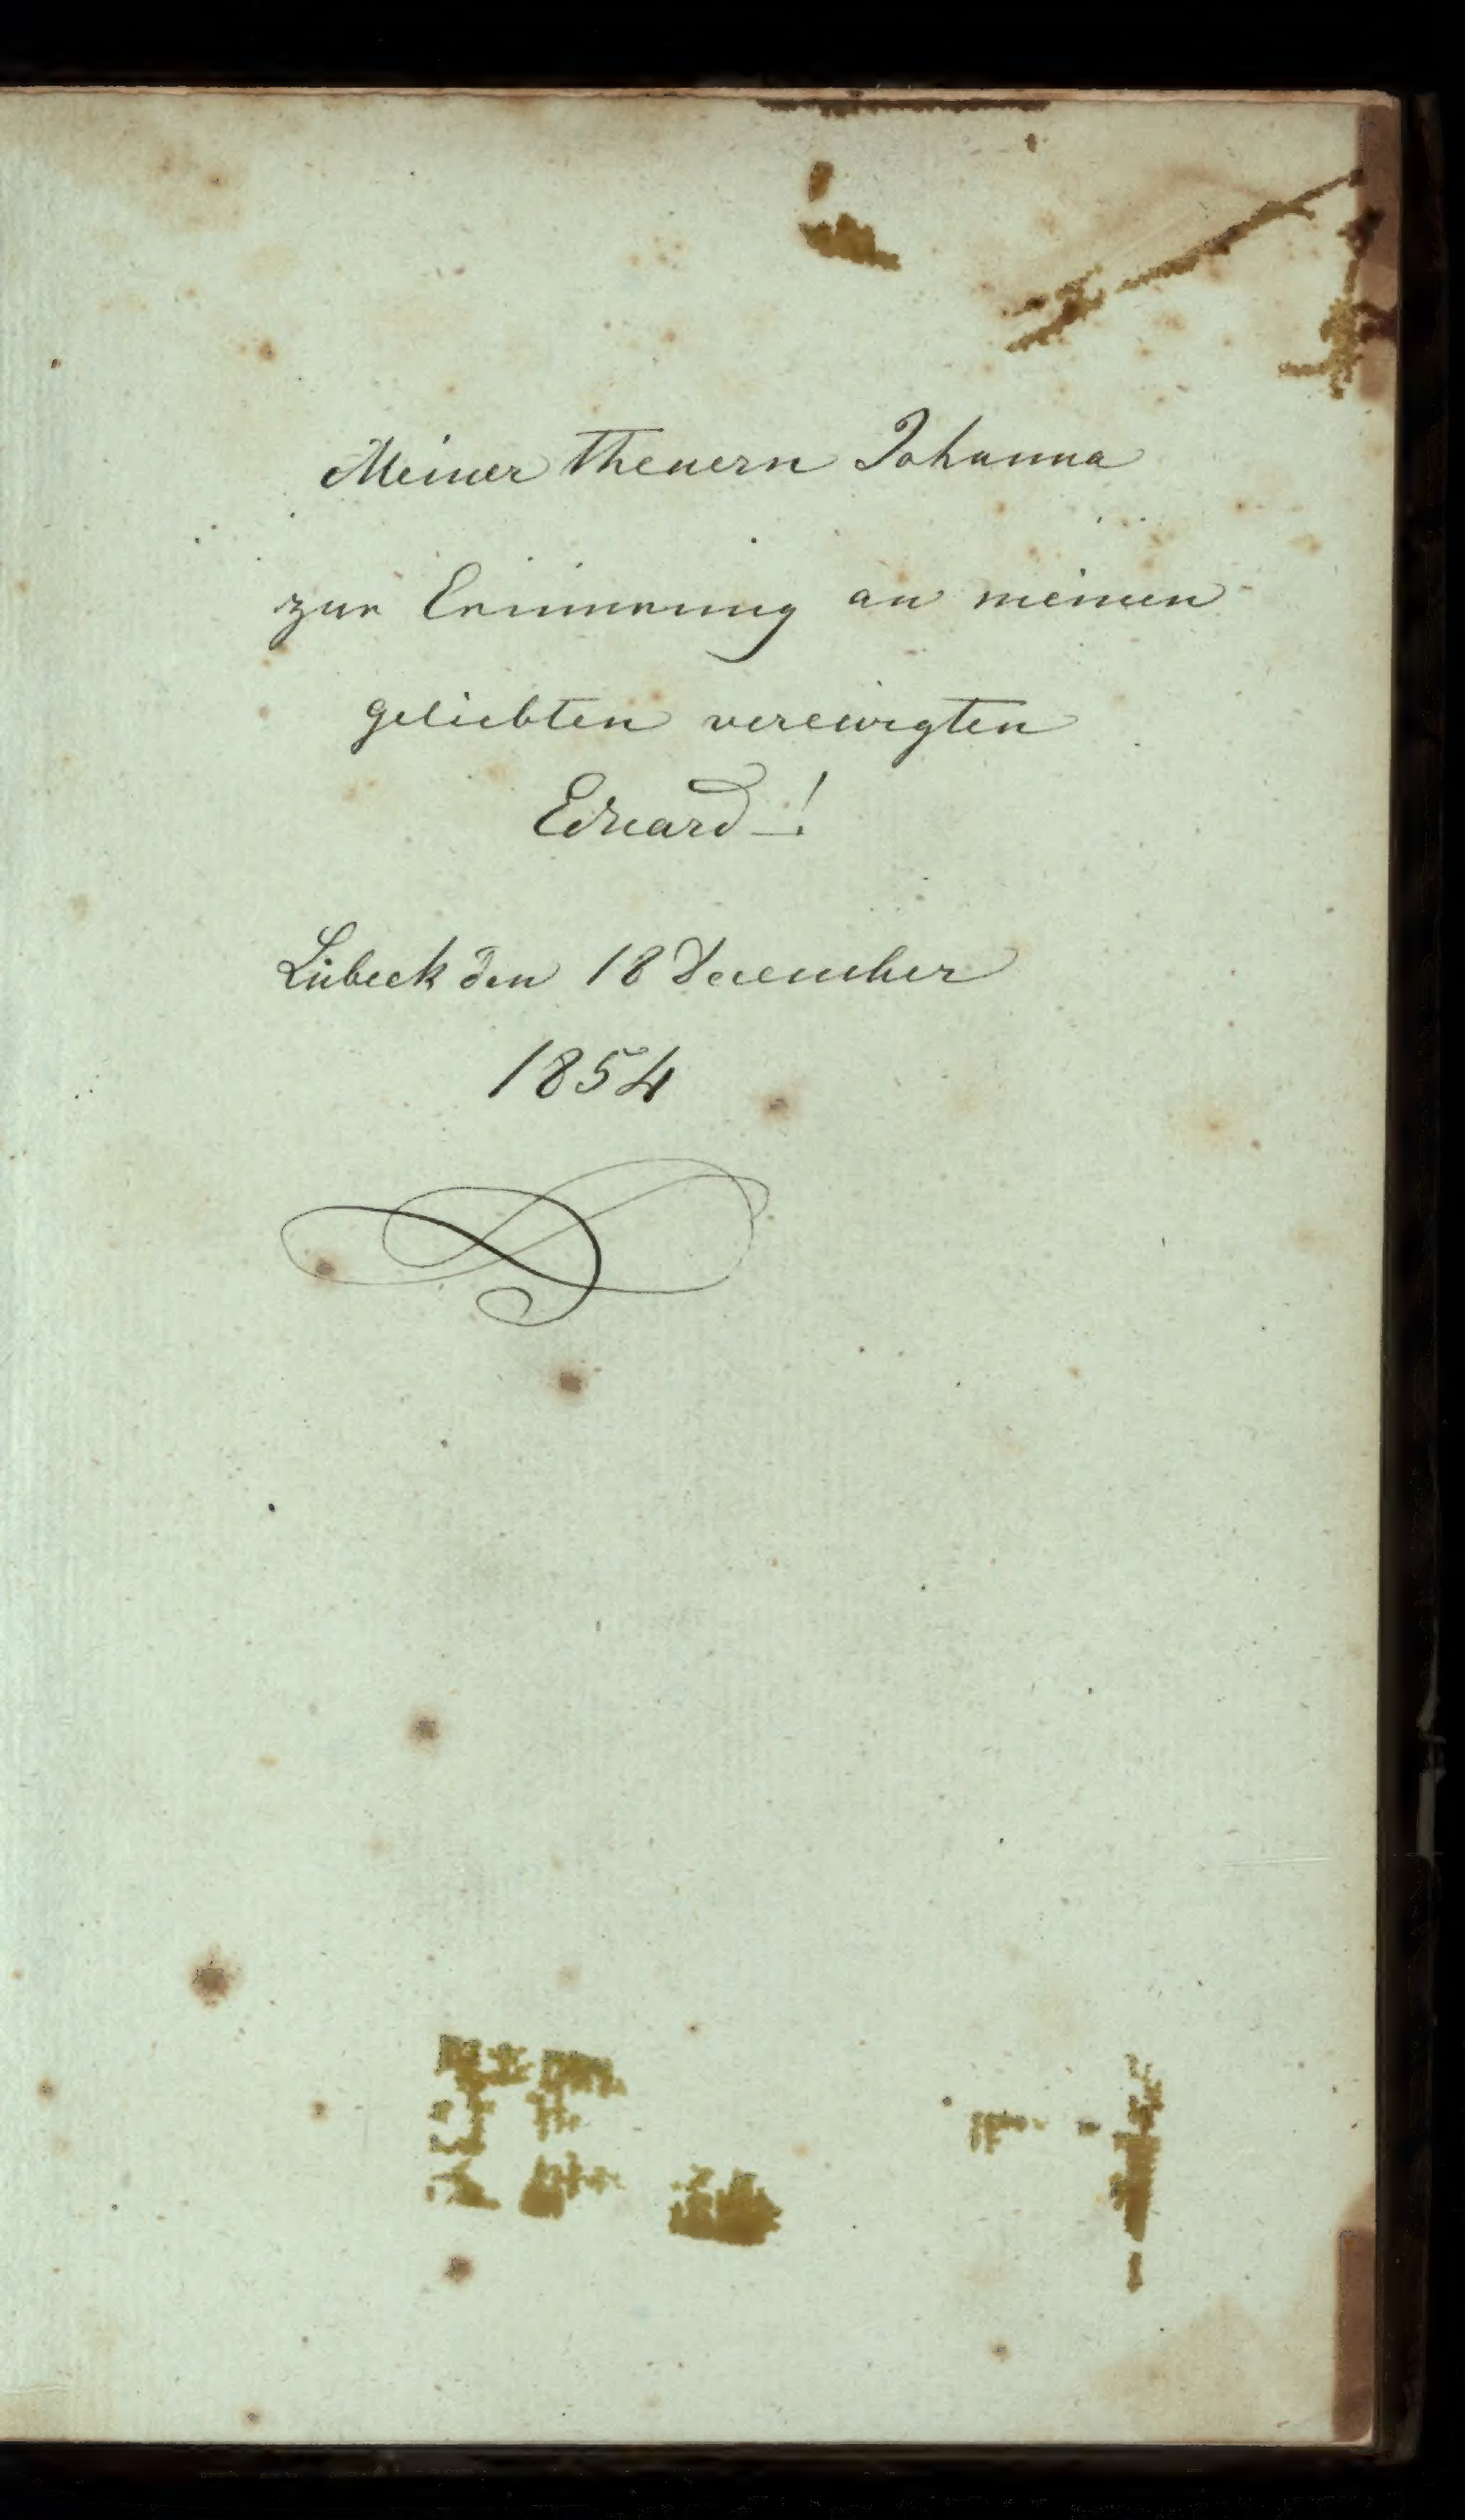 Meiner theuern Johanna
zur Erinnerung an meinen
geliebten verewigten
Eduard !
Lübeck den 18 December
1854